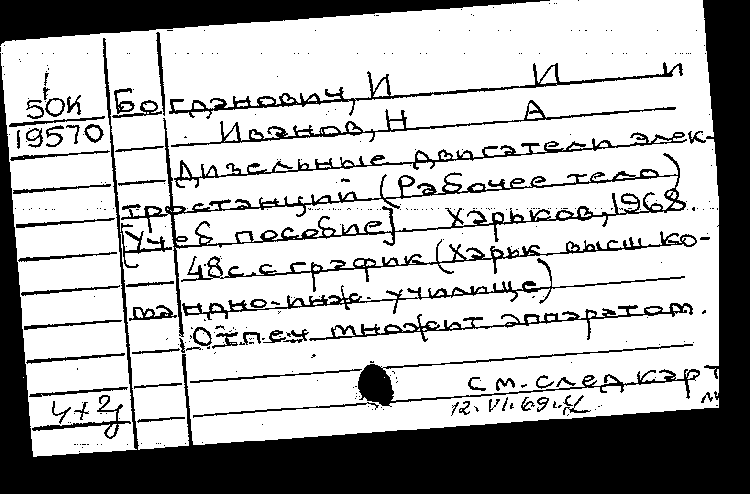 50К Богданович, И И и
19570 Иванов, Н А
Дизельные двигатели элек-
тростанций (Рабочее тело)
[Учеб. пособие]. Харьков, 1968.
48с. с график (Харьк высш ко-
мандно-инж. училище)
Отпеч множит аппаратом.
см. след карт
4+2д 12.VI.69.